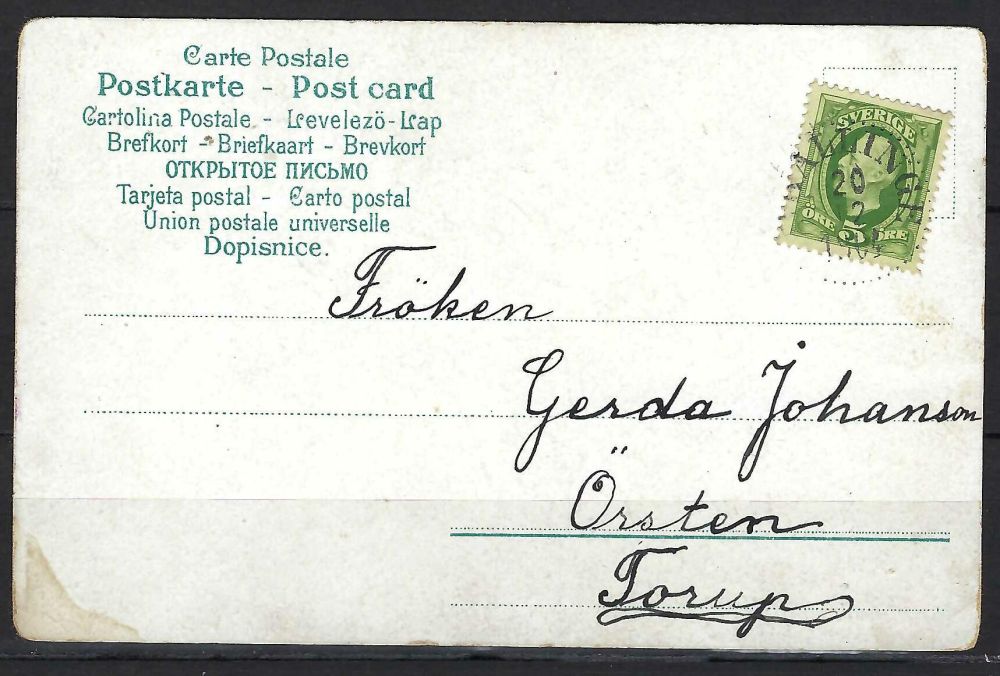 Carte Postale
Postkarte - Post card
Cartolina Postale - Levelezö-Lap
Brefkort - Briefkaart - Brevkort
ОТКРЫТОЕ ПИСЬМО
Tarjeta postal - Carto postal
Union postale universelle
Dopisnice.
SVERIGE
ÖRE 5 ÖRE
20
2
Fröken
Gerda Johanson
Örsten
Torup